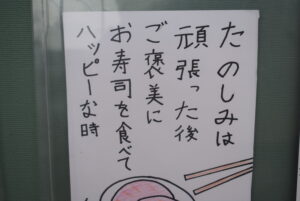 たのしみは
頑張った後
ご褒美に
お寿司を食べて
ハッピーな時